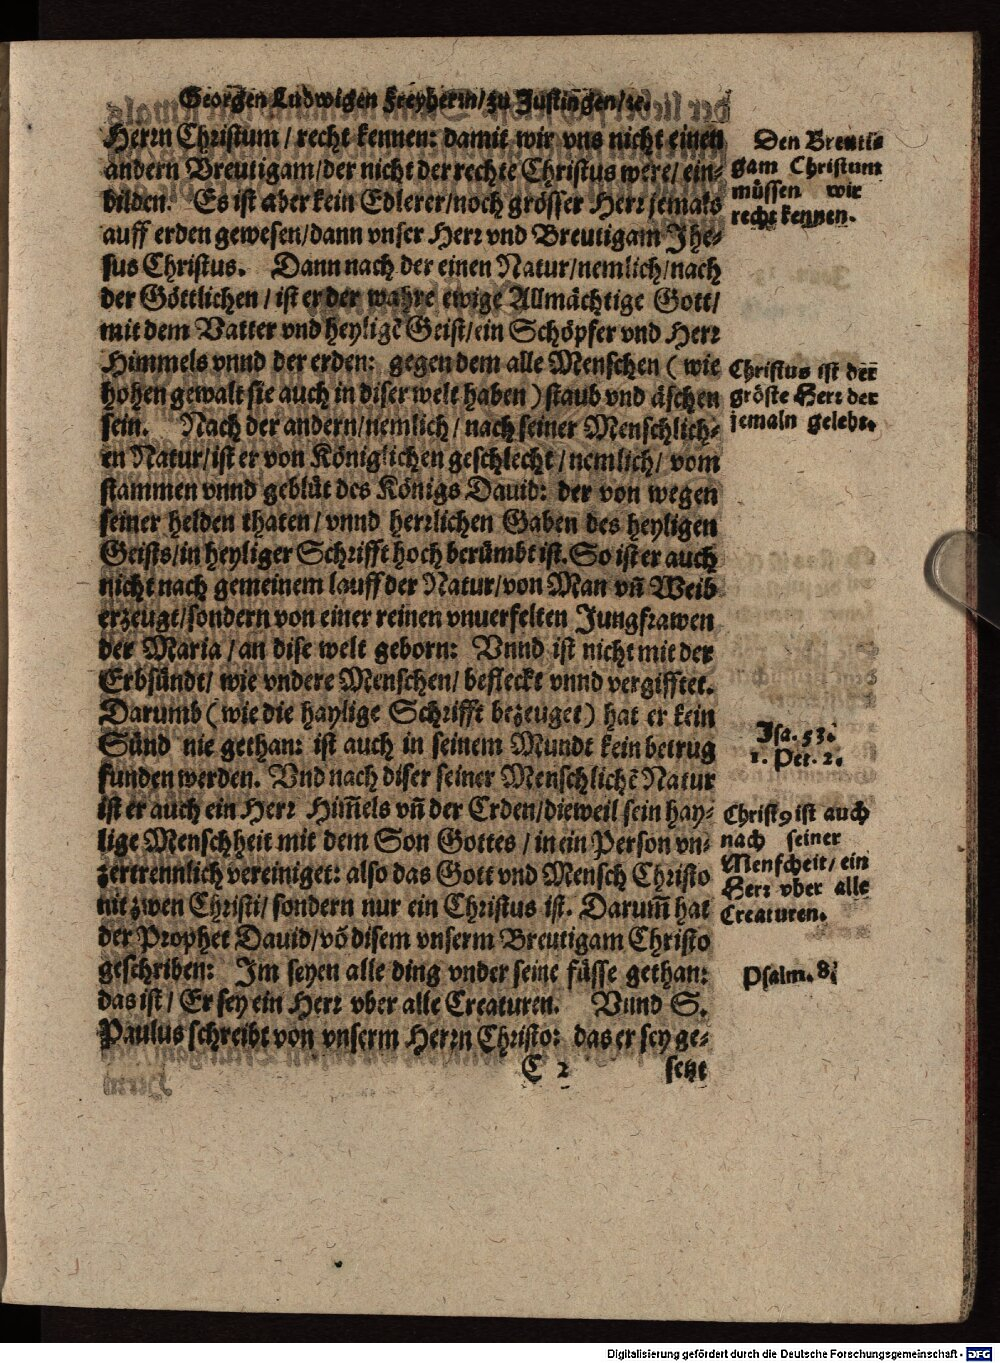 Georgen Ludwigen Freyherrn/ zu Justingen/ ꝛc.
Herrn Christum / recht kennen: damit wir vns nicht einen
andern Breutigam/ der nicht der rechte Christus were/ ein-
bilden. Es ist aber kein Edlerer/ noch grösser Herr jemals
auff erden gewesen/ dann vnser Herr vnd Breutigam Jhe-
sus Christus. Dann nach der einen Natur/ nemlich/ nach
der Göttlichen / ist er der wahre ewige Allmächtige Gott/
mit dem Vatter vnd heyligẽ Geist/ ein Schöpfer vnd Herr
Himmels vnnd der erden: gegen dem alle Menschen ( wie
hohen gewalt sie auch in diser welt haben ) staub vnd äschen
sein. Nach der andern/ nemlich / nach seiner Menschlich-
en Natur/ ist er von Königlichen geschlecht / nemlich/ vom
stammen vnnd geblüt des Königs Dauid: der von wegen
seiner helden thaten / vnnd herrlichen Gaben des heyligen
Geists/ in heyliger Schrifft hoch berümbt ist. So ist er auch
nicht nach gemeinem lauff der Natur/ von Man vñ Weib
erzeugt/ sondern von einer reinen vnuerfelten Jungfrawen
der Maria / an dise welt geborn: Vnnd ist nicht mit der
Erbsündt/ wie vndere Menschen/ befleckt vnnd vergifftet.
Darumb ( wie die haylige Schrifft bezeuget ) hat er kein
Sünd nie gethan: ist auch in seinem Mundt kein betrug
funden werden. Vnd nach diser seiner Menschlichẽ Natur
ist er auch ein Herr Him̃els vñ der Erden/ dieweil sein hay-
lige Menschheit mit dem Son Gottes / in ein Person vn-
zertrennlich vereiniget: also das Gott vnd Mensch Christo
nit zwen Christi/ sondern nur ein Christus ist. Darum̃ hat
der Prophet Dauid/ võ disem vnserm Breutigam Christo
geschriben: Im seyen alle ding vnder seine füsse gethan:
das ist / Er sey ein Herr vber alle Creaturen. Vnnd S.
Paulus schreibt von vnserm Herrn Christo: das er sey ge-
C 2 setzt
Den Breuti-
gam Christum
müssen wir
recht kennen.
Christus ist der
gröste Herr der
jemaln gelebt.
Isa. 53.
1. Pet. 2.
Christꝰ ist auch
nach seiner
Menscheit/ ein
Herr vber alle
Creaturen.
Psalm. 8.
Digitalisierung gefördert durch die Deutsche Forschungsgemeinschaft - DFG